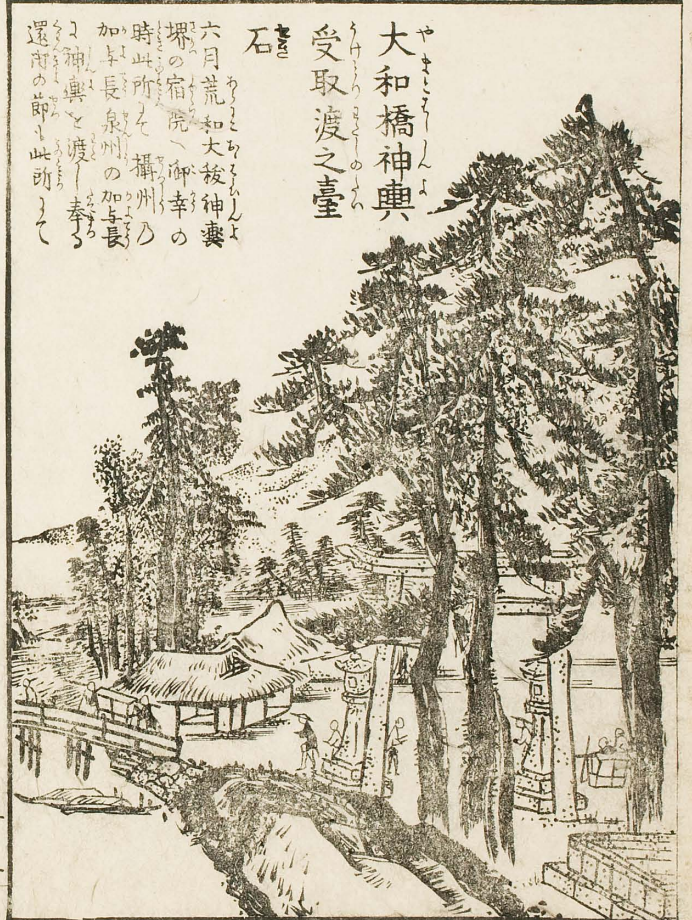 大和橋神輿
受取渡之臺
石
六月荒和大秡神輿
堺の宿院へ御幸の
時此所にて攝州乃
加与長泉州の加与長
に神輿を渡し奉る
還御の節も此所にて